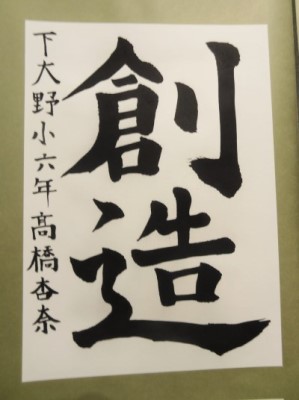 創造
下大野小六年髙橋杏奈